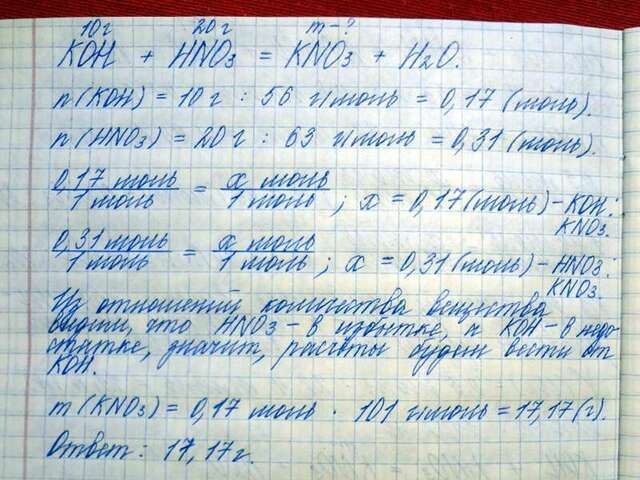 10г 20г m-?
KOH + HNO₃ = KNO₃ + H₂O.
n(KOH) = 10 г : 56 г/моль = 0,17 (моль).
n(HNO₃) = 20 г : 63 г/моль = 0,31 (моль).
0,17 моль / 1 моль = x моль / 1 моль ; x = 0,17 (моль) - KOH :
KNO₃.
0,31 моль / 1 моль = x моль / 1 моль ; x = 0,31 (моль) - HNO₃ :
KNO₃.
Из отношений количества вещества
видим, что HNO₃ - в избытке, а KOH - в недо
статке, значит, расчёты будем вести от
KOH.
m(KNO₃) = 0,17 моль · 101 г/моль = 17,17 (г).
Ответ: 17,17г.